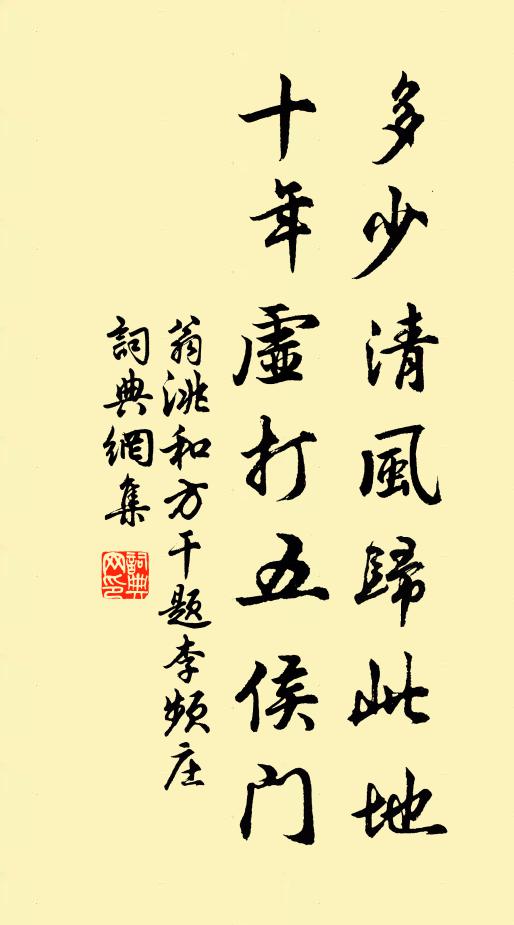 多少清風歸此地
十年虛打五侯門
翁洮和方干題李頻庄
詞典網集
詞典網印